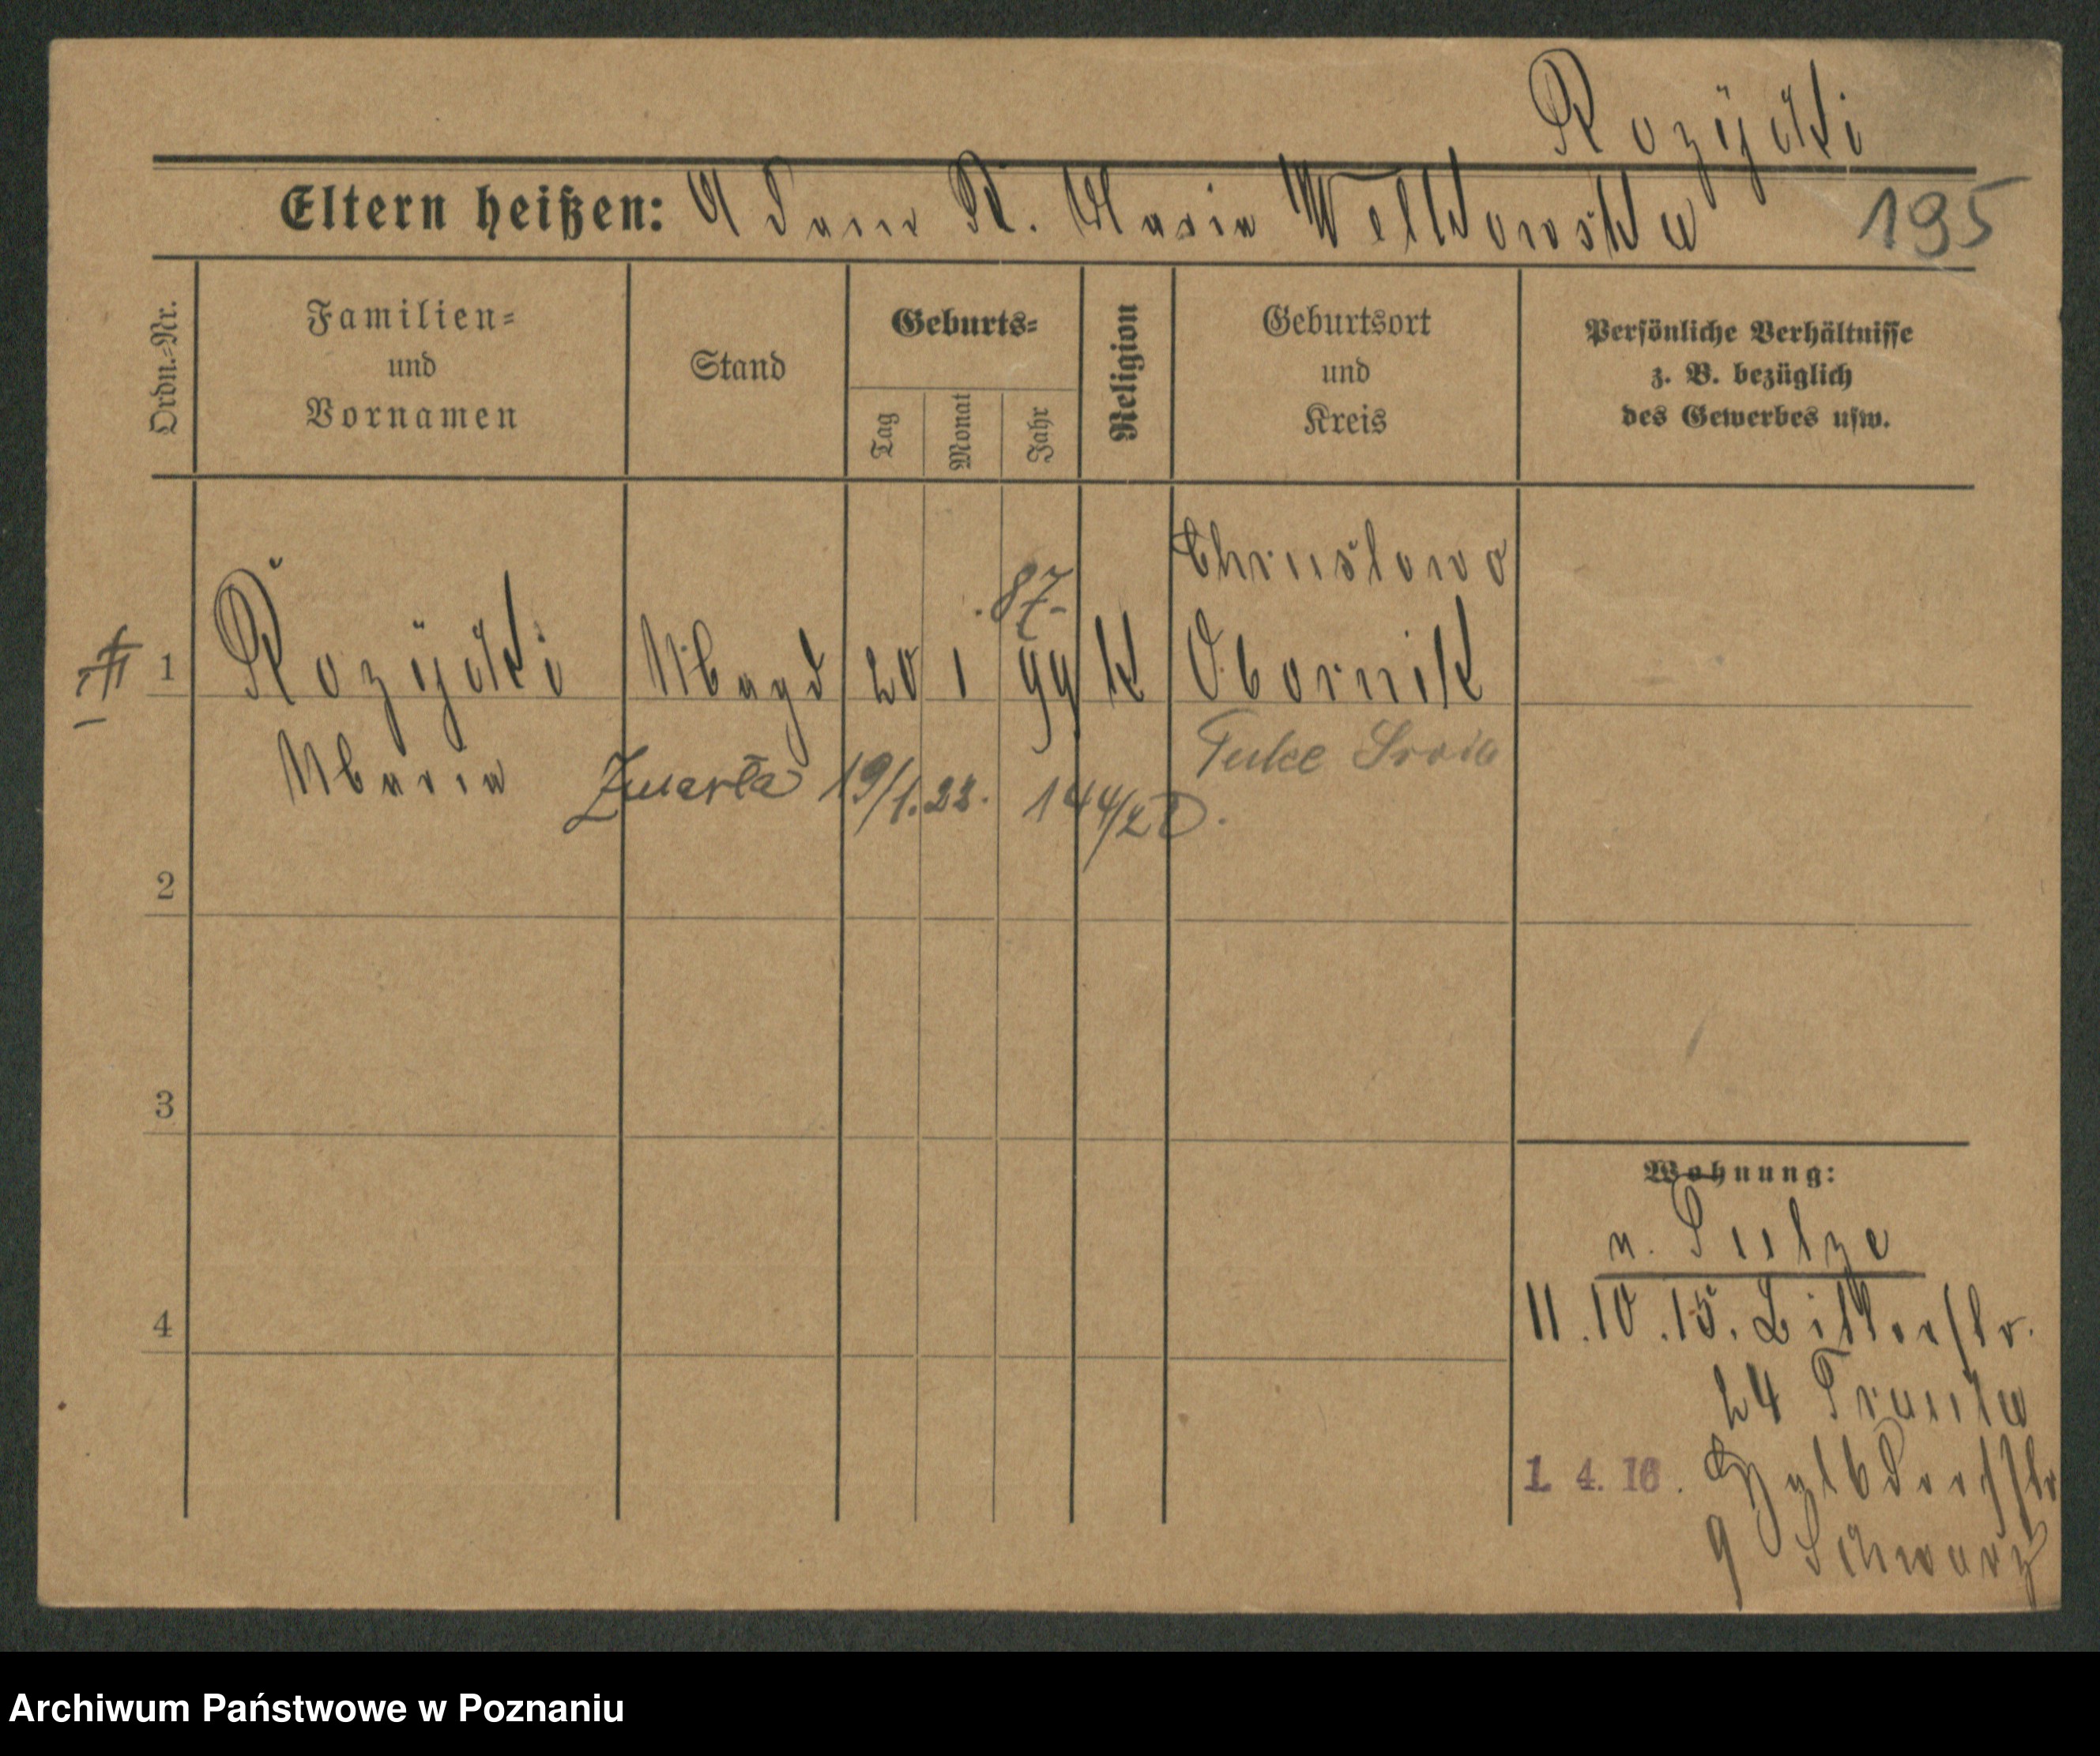 Rozycki
Eltern heißen: Adam R. Maria Welkowska 195
Ordn.=Nr.
Familien=
und
Vornamen
Stand
Geburts=
Tag
Monat
Jahr
Religion
Geburtsort
und
Kreis
Persönliche Verhältnisse
z. B. bezüglich
des Gewerbes usw.
Chrustowo
87
1 Rozycki Magd 20 1 99 k Obornik
Maria Zmarła 19/1.22. 144/22
2
3
4
Wohnung:
n. Pulze
11.10.15.
24
1. 4. 16.
9 Schwarz
Archiwum Państwowe w Poznaniu